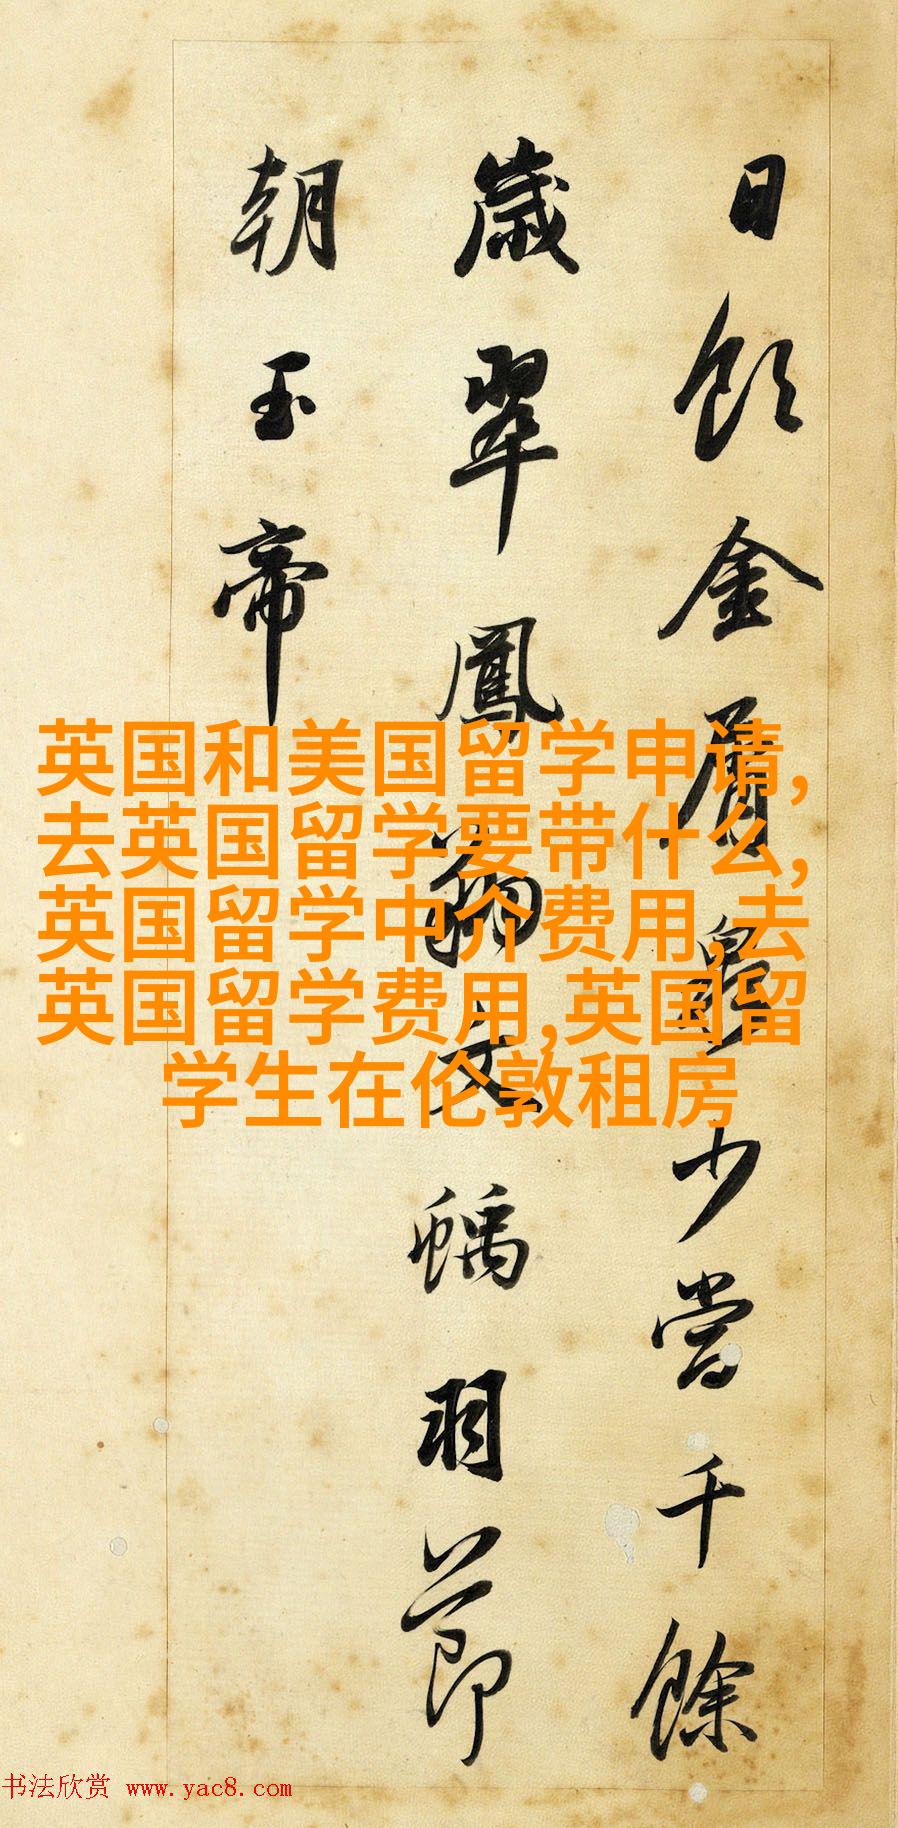 日飲金屑泉少當千餘
歲翠鳳文螭羽節
朝玉帝
英国和美国留学申请,
去英国留学要带什么,
英国留学中介费用,去
英国留学费用,英国留
学生在伦敦租房
书法欣赏 www.yac8.com